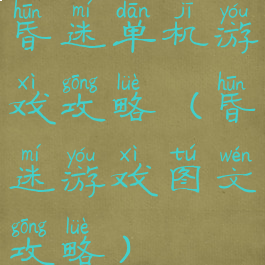 hūn mí dān jī yóu
昏迷单机游
xì gōng lüè hūn
戏攻略（昏
mí yóu xì tú wén
迷游戏图文
gōng lüè
攻略）